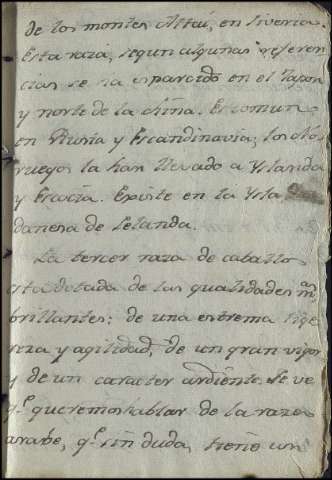 de los montes Altaí, en Siveria.
Esta raza, segun algunas referen
cias se ha esparcido en el Japon
y norte de la china. Es comun
en Rusia y Escandinavia; los No
ruegos la han llevado a Yslandia
y Escocia. Existe en la Ysla
danesa de Selanda.
La tercer raza de caballos
esta dotada de las qualidades mˢ
brillantes: de una estrema lige
reza y agilidad, de un gran vigor
y de un caracter ardiente. Se ve
q.ᵉ queremos hablar de la raza
arabe, q.ᵉ sin duda, tiene un